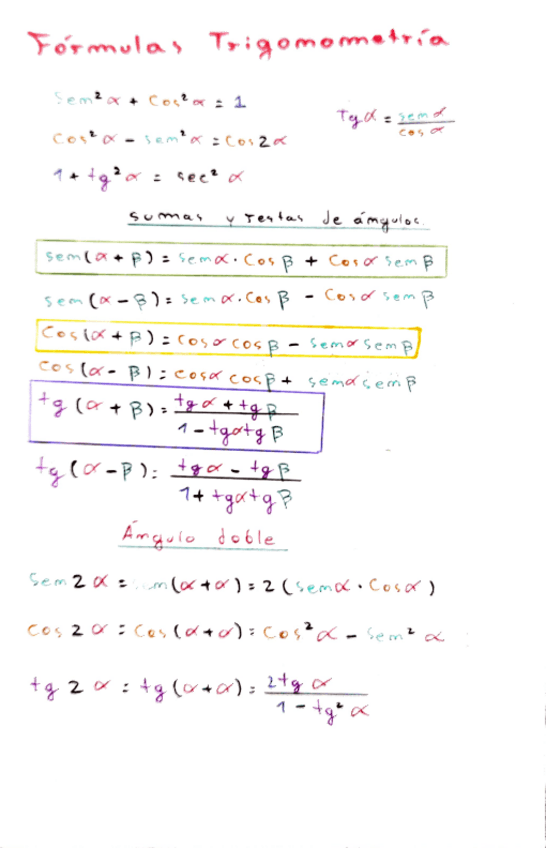 Fórmulas Trigomometría
sem² α + cos² α = 1
tg α = sem α / cos α
cos² α - sem² α = cos 2 α
1 + tg² α = sec² α
sumas y restas de ámgulos.
sem (α + β) = sem α · cos β + cos α sem β
sem (α - β) = sem α · cos β - cos α sem β
cos (α + β) = cos α cos β - sem α sem β
cos (α - β) = cos α cos β + sem α sem β
tg (α + β) = tg α + tg β / 1 - tg α tg β
tg (α - β) = tg α - tg β / 1 + tg α tg β
Ámgulo doble
sem 2 α = (α + α) = 2 (sem α · cos α)
cos 2 α = cos (α + α) = cos² α - sem² α
tg 2 α = tg (α + α) = 2 tg α / 1 - tg² α